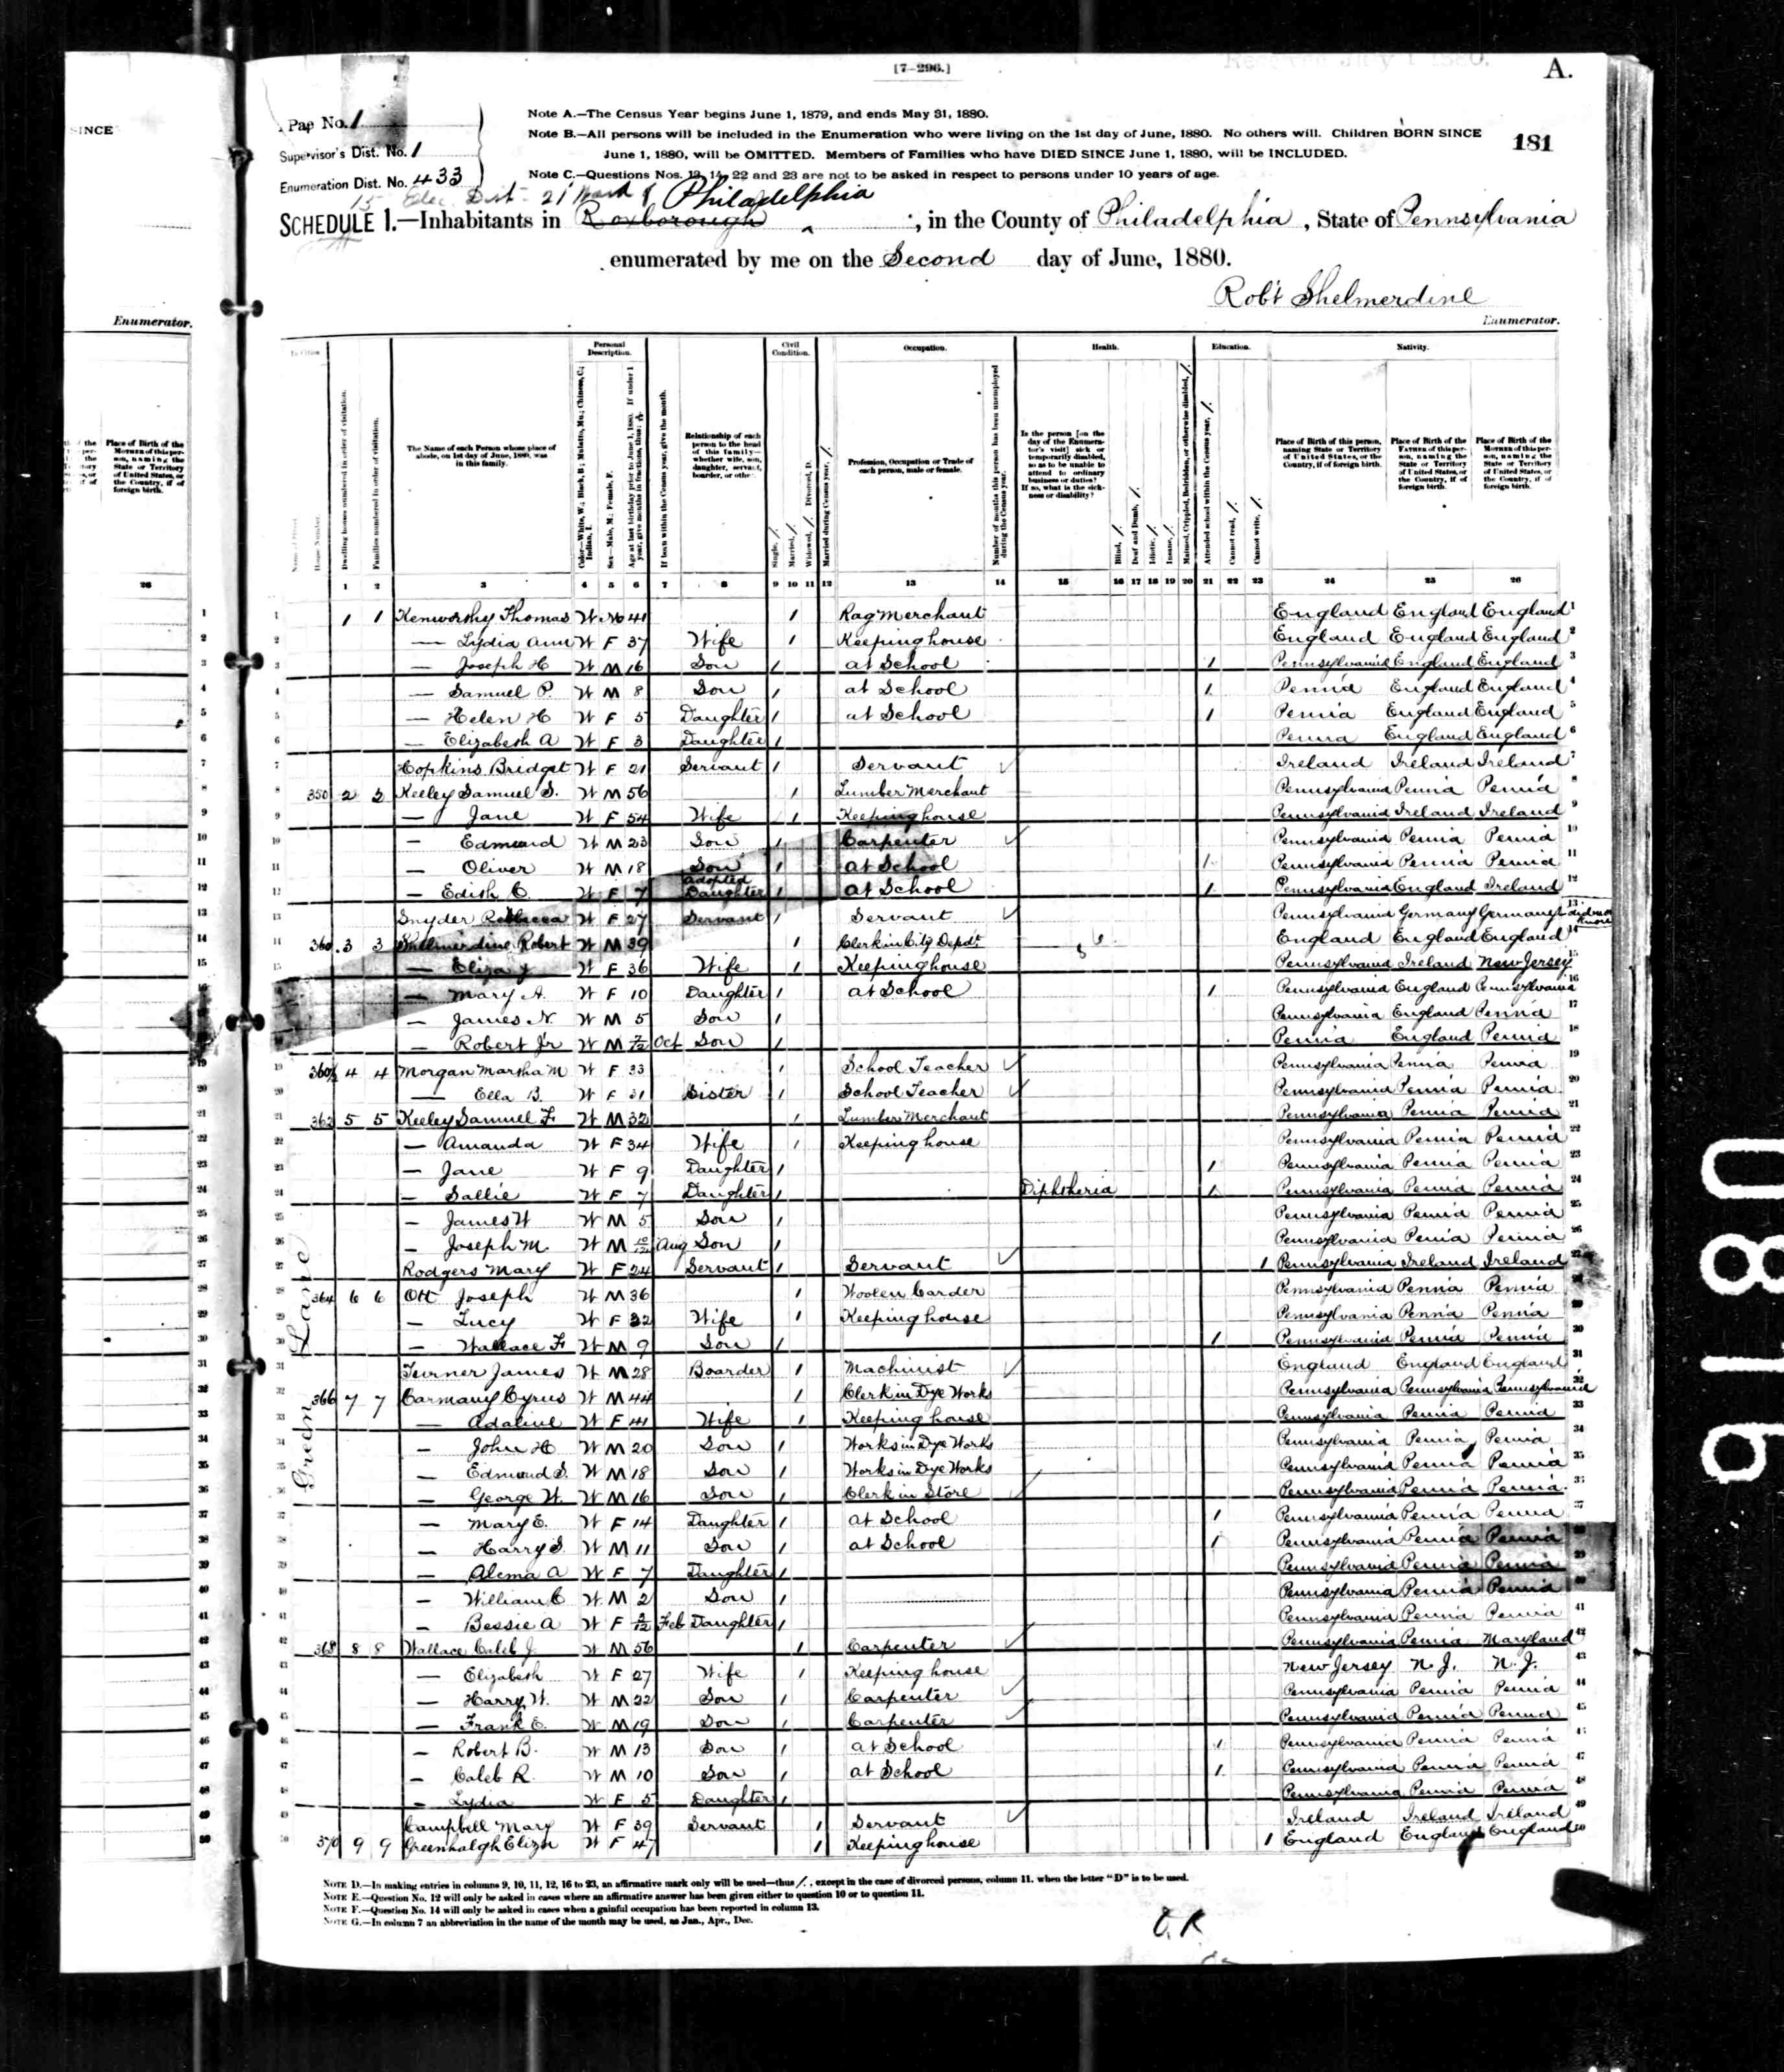 [7-296.]
A.
Note A.—The Census Year begins June 1, 1879, and ends May 31, 1880.
Page No. 1
Note B.—All persons will be included in the Enumeration who were living on the 1st day of June, 1880. No others will. Children BORN SINCE
June 1, 1880, will be OMITTED. Members of Families who have DIED SINCE June 1, 1880, will be INCLUDED.
181
Supervisor's Dist. No. 1
Enumeration Dist. No. 433
Note C.—Questions Nos. 13, 14, 22 and 23 are not to be asked in respect to persons under 10 years of age.
15 Elec. Dist 21 Ward of Philadelphia
SCHEDULE 1.—Inhabitants in Roxborough, in the County of Philadelphia, State of Pennsylvania
enumerated by me on the Second day of June, 1880.
Rob't Shelmerdine
Enumerator.
Personal Description. Civil Condition. Occupation. Health. Education. Nativity.
The Name of each Person whose place of abode, on 1st day of June, 1880, was in this family.
Relationship of each person to the head of this family—whether wife, son, daughter, servant, boarder, or other.
Profession, Occupation or Trade of each person, male or female.
Place of Birth of this person, naming State or Territory of United States, or the Country, if of foreign birth.
1 2 3 4 5 6 7 8 9 10 11 12 13 14 15 16 17 18 19 20 21 22 23 24 25 26
1 1 1 Kenworthy Thomas W M 41 1 Rag Merchant England England England 1
2 — Lydia Ann W F 37 Wife 1 Keeping house England England England 2
3 — Joseph H W M 16 Son 1 at School 1 Pennsylvania England England 3
4 — Samuel P. W M 8 Son 1 at School 1 Penn'a England England 4
5 — Helen H W F 5 Daughter 1 at School 1 Penn'a England England 5
6 — Elizabeth A W F 3 Daughter 1 Penna England England 6
7 Hopkins Bridget W F 21 Servant 1 Servant Ireland Ireland Ireland 7
8 350 2 2 Keeley Samuel S. W M 56 1 Lumber Merchant Pennsylvania Penn'a Penn'a 8
9 — Jane W F 54 Wife 1 Keeping house Pennsylvania Ireland Ireland 9
10 — Edmund W M 23 Son 1 Carpenter Pennsylvania Penn'a Penn'a 10
11 — Oliver W M 18 Son 1 at School 1 Pennsylvania Penn'a Penn'a 11
12 — Edith C. W F 7 adopted Daughter 1 at School 1 Pennsylvania England Ireland 12
13 Snyder Rebecca W F 27 Servant 1 Servant Pennsylvania Germany Germany 13
14 360 3 3 Shelmerdine Robert W M 39 1 Clerk in City Dept England England England 14
15 — Eliza J W F 36 Wife 1 Keeping house Pennsylvania Ireland New Jersey 15
16 — Mary A. W F 10 Daughter 1 at School 1 Pennsylvania England Pennsylvania 16
17 — James N. W M 5 Son 1 Pennsylvania England Penn'a 17
18 — Robert Jr W M 7/12 Oct Son 1 Penn'a England Penn'a 18
19 360½ 4 4 Morgan Martha M W F 33 1 School Teacher Pennsylvania Penn'a Penn'a 19
20 — Ella B. W F 31 Sister 1 School Teacher Pennsylvania Penn'a Penn'a 20
21 362 5 5 Keeley Samuel F. W M 32 1 Lumber Merchant Pennsylvania Penn'a Penn'a 21
22 — Amanda W F 34 Wife 1 Keeping house Pennsylvania Penn'a Penn'a 22
23 — Jane W F 9 Daughter 1 1 Pennsylvania Penn'a Penn'a 23
24 — Sallie W F 7 Daughter 1 Diphtheria 1 Pennsylvania Penn'a Penn'a 24
25 — James W W M 5 Son 1 Pennsylvania Penn'a Penn'a 25
26 — Joseph M. W M 10/12 Aug Son 1 Pennsylvania Penn'a Penn'a 26
27 Rodgers Mary W F 24 Servant 1 Servant 1 Pennsylvania Ireland Ireland 27
28 364 6 6 Ott Joseph W M 36 1 Woolen Carder Pennsylvania Penn'a Penn'a 28
29 — Lucy W F 32 Wife 1 Keeping house Pennsylvania Penn'a Penn'a 29
30 — Wallace F W M 9 Son 1 1 Pennsylvania Penn'a Penn'a 30
31 Turner James W M 28 Boarder 1 Machinist England England England 31
32 366 7 7 Carmany Cyrus W M 44 1 Clerk in Dye Works Pennsylvania Pennsylvania Pennsylvania 32
33 — Adaline W F 41 Wife 1 Keeping house Pennsylvania Penn'a Penn'a 33
34 — John H W M 20 Son 1 Works in Dye Works Pennsylvania Penn'a Penn'a 34
35 — Edmund S. W M 18 Son 1 Works in Dye Works Pennsylvania Penn'a Penn'a 35
36 — George W. W M 16 Son 1 Clerk in Store Pennsylvania Penn'a Penn'a 36
37 — Mary E. W F 14 Daughter 1 at School 1 Pennsylvania Penn'a Penn'a 37
38 — Harry S. W M 11 Son 1 at School 1 Pennsylvania Penn'a Penn'a 38
39 — Alema A W F 7 Daughter 1 Pennsylvania Penn'a Penn'a 39
40 — William C W M 2 Son 1 Pennsylvania Penn'a Penn'a 40
41 — Bessie A W F Feb Daughter 1 Pennsylvania Penn'a Penn'a 41
42 368 8 8 Wallace Caleb J. W M 56 1 Carpenter Pennsylvania Penn'a Maryland 42
43 — Elizabeth W F 27 Wife 1 Keeping house New Jersey N. J. N. J. 43
44 — Harry W. W M 22 Son 1 Carpenter Pennsylvania Penn'a Penn'a 44
45 — Frank E. W M 19 Son 1 Carpenter Pennsylvania Penn'a Penn'a 45
46 — Robert B. W M 13 Son 1 at School 1 Pennsylvania Penn'a Penn'a 46
47 — Caleb R. W M 10 Son 1 at School 1 Pennsylvania Penn'a Penn'a 47
48 — Lydia W F 5 Daughter 1 Pennsylvania Penn'a Penn'a 48
49 Campbell Mary W F 39 Servant 1 Servant Ireland Ireland Ireland 49
50 370 9 9 Greenhalgh Eliza W F 47 1 Keeping house 1 England England England 50
Green Lane
NOTE D.—In making entries in columns 9, 10, 11, 12, 16 to 23, an affirmative mark only will be used—thus /, except in the case of divorced persons, column 11, when the letter "D" is to be used.
NOTE E.—Question No. 12 will only be asked in cases where an affirmative answer has been given either to question 10 or to question 11.
NOTE F.—Question No. 14 will only be asked in cases when a gainful occupation has been reported in column 13.
NOTE G.—In column 7 an abbreviation in the name of the month may be used, as Jan., Apr., Dec.
O.K
0816